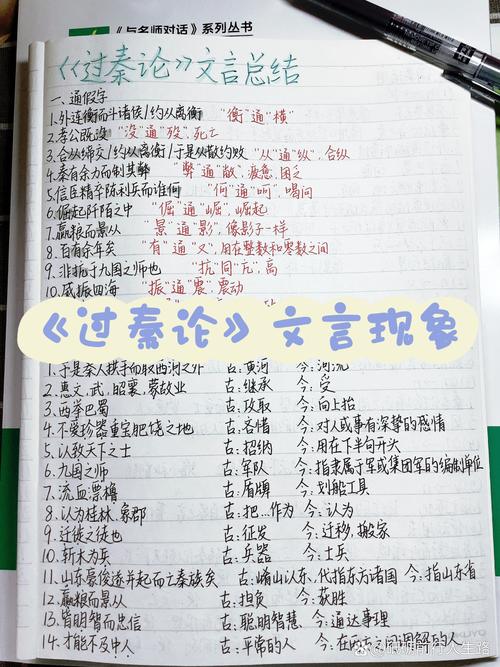 《与名师对话》系列丛书
《过秦论》文言总结
一、通假字
1.外连衡而斗诸侯/约从离衡 "衡"通"横"
2.孝公既没 "没"通"殁",死亡
3.合从缔交/约从离衡/于是从散约败 "从"通"纵",合纵
4.秦有余力而制其弊 "弊"通"敝",疲惫,困乏
5.信臣精卒陈利兵而谁何 "何"通"呵",喝问
6.倔起阡陌之中 "倔"通"崛",崛起
7.赢粮而景从 "景"通"影",像影子一样
8.百有余年矣 "有"通"又",用在整数和零数之间
9.非抗于九国之师也 "抗"同"亢",高
10.威振四海 "振"通"震",震动
《过秦论》文言现象
1.于是秦人拱手而取西河之外 古:黄河 今:河流
2.惠文,武,昭襄,蒙故业 古:继承 今:受
3.西举巴蜀 古:攻取 今:向上抬
4.不爱珍器重宝肥饶之地 古:吝惜 今:对人或事有深挚的感情
5.以致天下之士 古:招纳 今:用在下半句开头
6.九国之师 古:军队 今:指隶属于军或集团军的编制单位
7.流血漂橹 古:盾牌 今:划船工具
8.以为桂林、象郡 古:把…作为 今:认为
9.迁徙之徒也 古:征发 今:迁移,搬家
10.斩木为兵 古:兵器 今:士兵
11.山东豪俊遂并起而亡秦族矣 古:崤山以东,代指东方诸国 今:指山东省
12.赢粮而景从 古:担负 今:获胜
13.皆明智而忠信 古:聪明智慧 今:通达事理
14.才能不及中人 古:平常的人 今:在两方之间调解的人